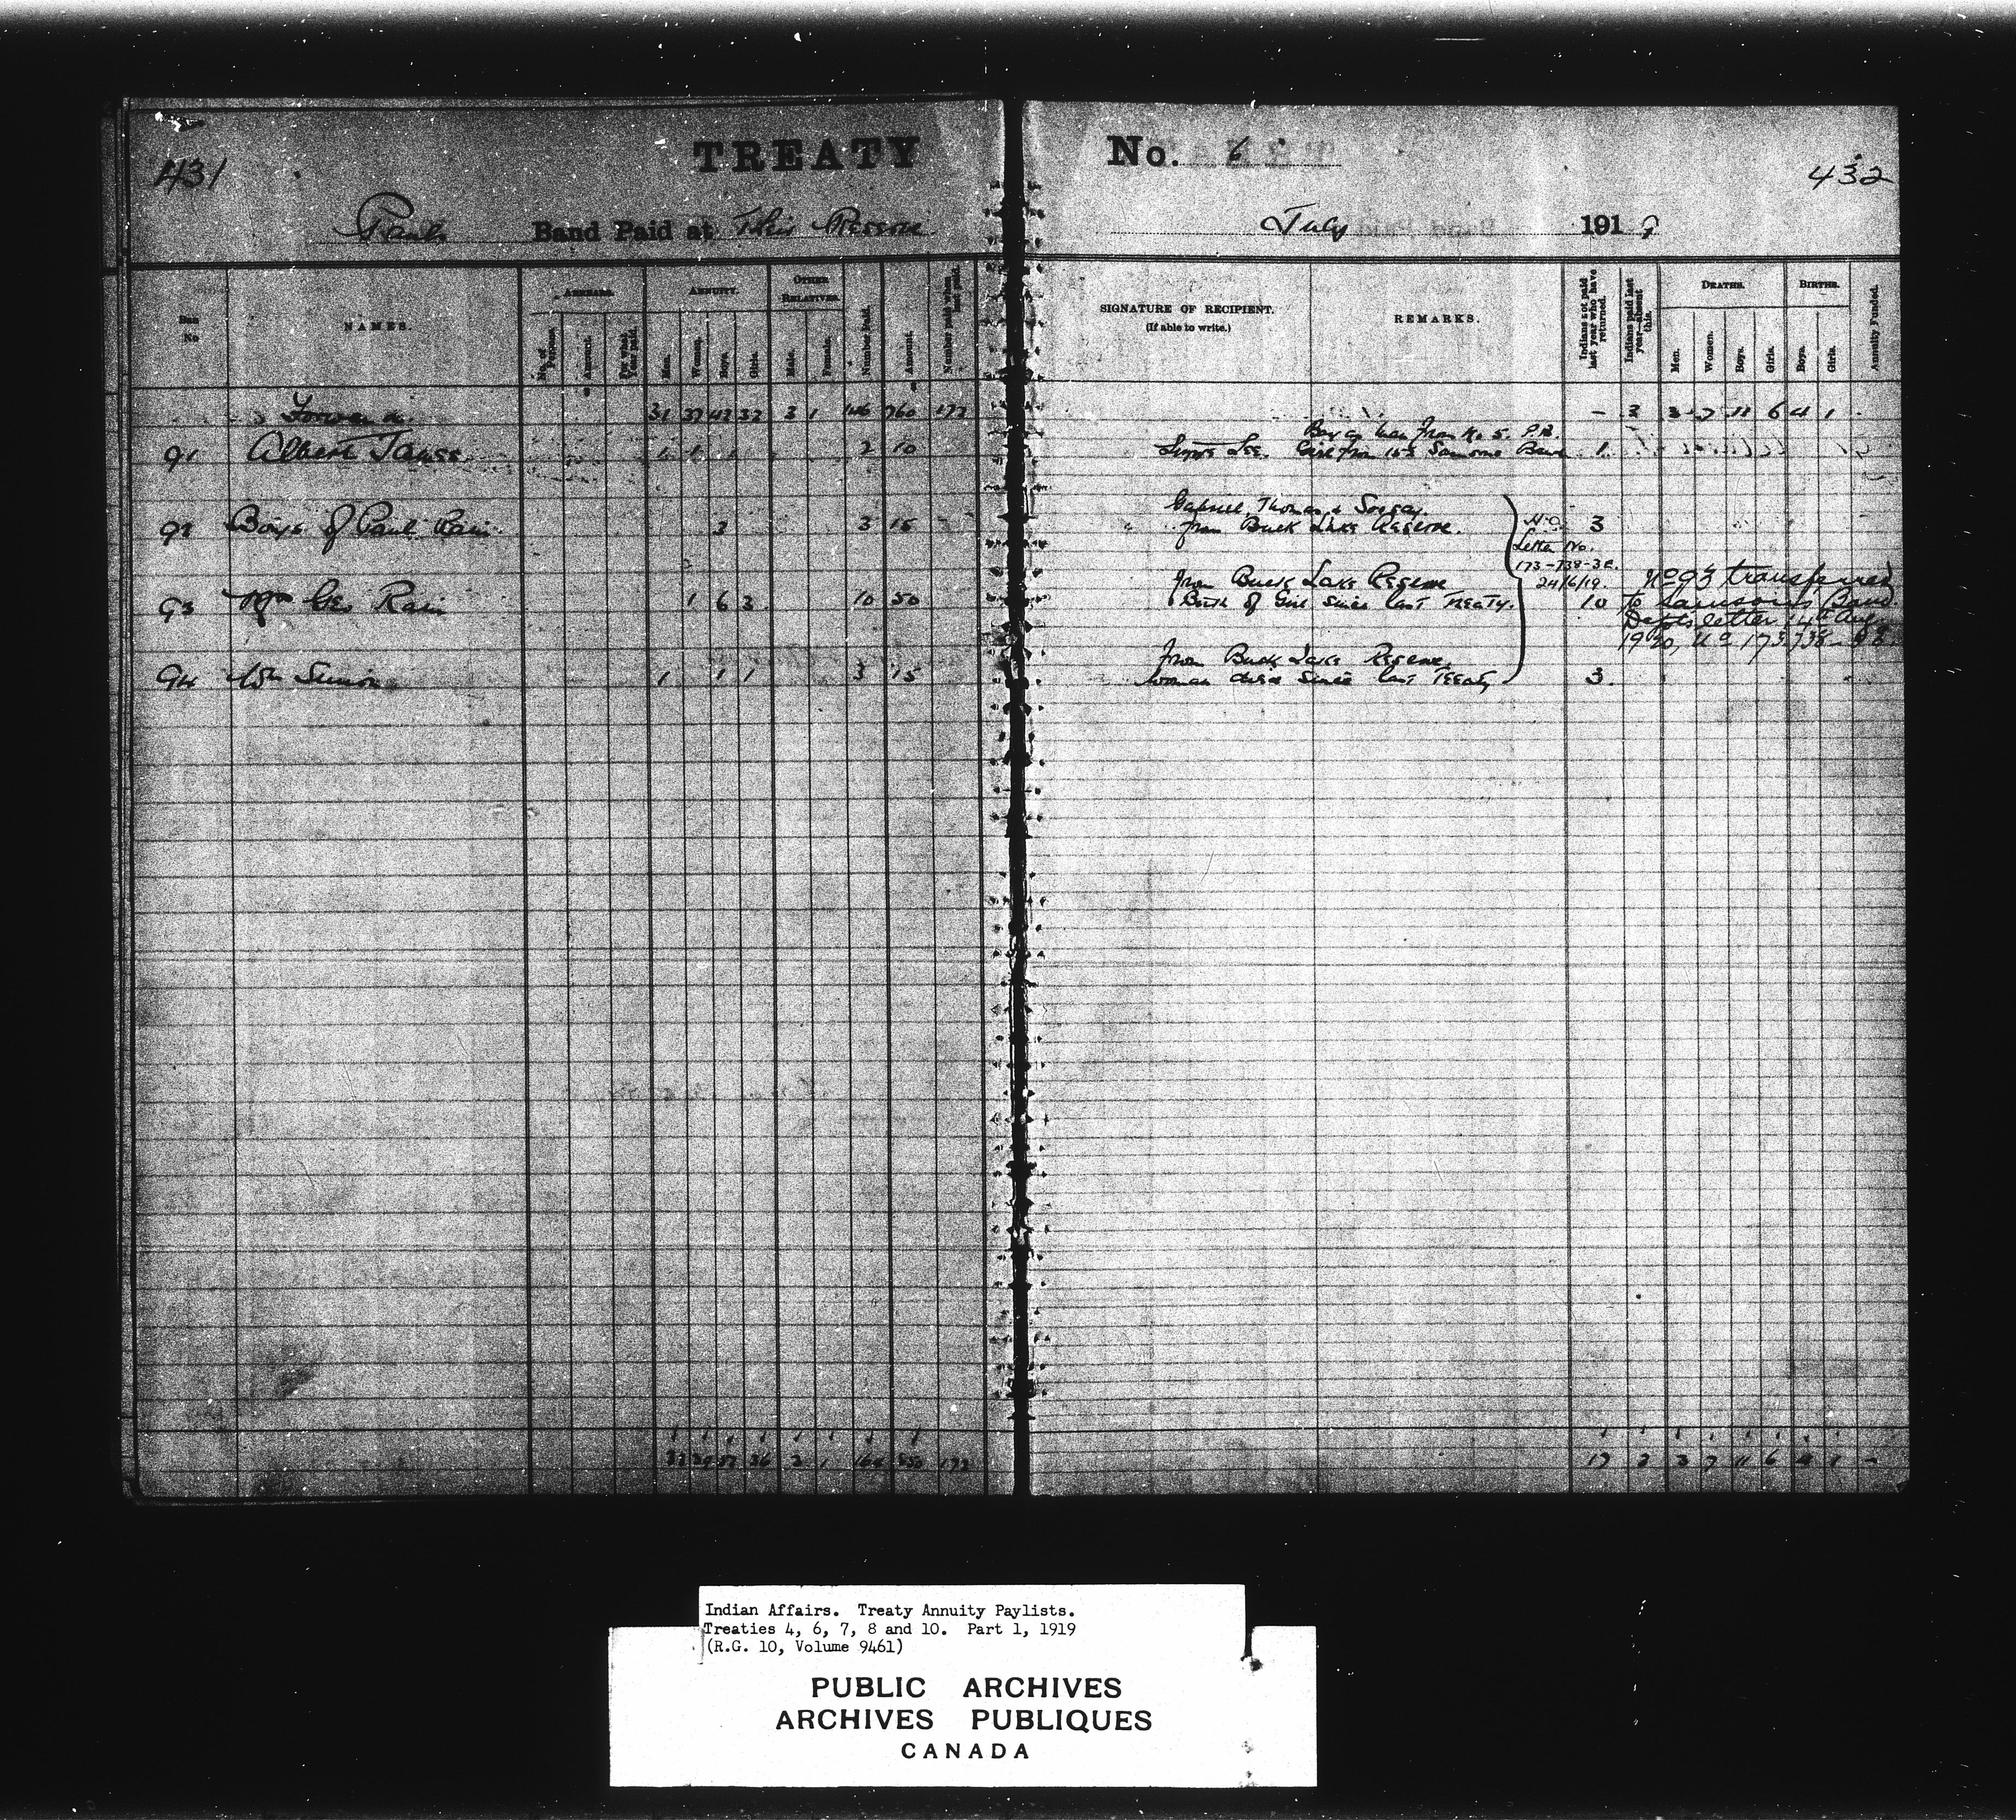 431
TREATY
No. 6
432
Pauls Band Paid at Their Reserve
July 1919
No
NAMES.
ARREARS.
No. of Persons.
Amount.
For what Year paid.
ANNUITY.
Men.
Women.
Boys.
Girls.
OTHER RELATIVES.
Male.
Female.
Number Paid.
Amount.
Number paid when last paid.
SIGNATURE OF RECIPIENT.
(If able to write.)
REMARKS.
Indians not paid last year who have returned.
Indians paid last year—absent this.
DEATHS.
Men.
Women.
Boys.
Girls.
BIRTHS.
Boys.
Girls.
Annuity Funded.
Forward 31 37 42 32 3 1 146 760 172 - 2 3 7 11 6 4 1
Boy a man from No 5. P.B.
91 Albert 1 1 2 10 Girl from Band 1
Gabriel, Thomas &
92 Boys of Paul Rain 3 3 15 from Buck Lake Reserve. H.O. 3
Letter No.
173-738-3
24/6/19.
from Buck Lake Reserve
93 Geo Rain 1 6 3 10 50 Birth of Girl since last Treaty. 10
No 93 transferred
to Samson's Band.
Depts letter 14th Aug
1920, No 173738-
from Buck Lake Reserve
94 Wm Simon 1 1 1 3 15 woman died since last Treaty 3
32 39 36 3 1 164 850 172 17 2 3 7 11 6 4 1 -
Indian Affairs. Treaty Annuity Paylists.
Treaties 4, 6, 7, 8 and 10. Part 1, 1919
(R.G. 10, Volume 9461)
PUBLIC ARCHIVES
ARCHIVES PUBLIQUES
CANADA